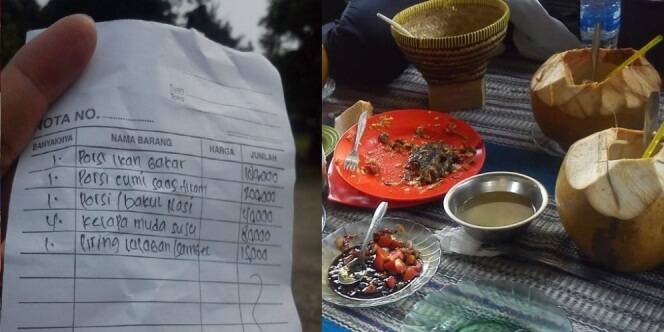 NOTA NO. ..................
BANYAKNYA NAMA BARANG HARGA JUMLAH
1. Porsi Ikan Bakar
1. Porsi cumi saos tiram 200,000
1. Porsi/bakul Nasi
4. Kelapa muda susu 80,000
1. Piring lalaban/sambel 15,000